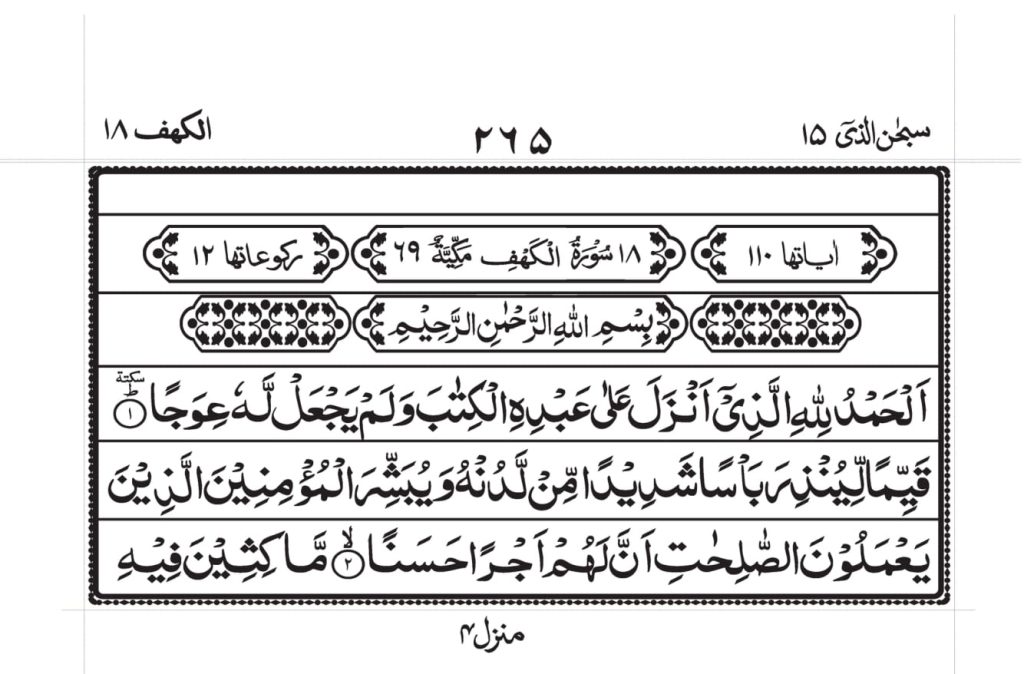 سبحٰن الذیٓ ۱۵ ۲۶۵ الکهف ۱۸
اٰیاتها ۱۱۰ ۱۸ سُوْرَةُ الْكَهْفِ مَكِّيَّةٌ ۶۹ رکوعاتها ۱۲
بِسْمِ اللّٰهِ الرَّحْمٰنِ الرَّحِيْمِ
اَلْحَمْدُ لِلّٰهِ الَّذِيْۤ اَنْزَلَ عَلٰى عَبْدِهِ الْكِتٰبَ وَلَمْ يَجْعَلْ لَّهٗ عِوَجًا ؕ سكتة ۱
قَيِّمًا لِّيُنْذِرَ بَاْسًا شَدِيْدًا مِّنْ لَّدُنْهُ وَيُبَشِّرَ الْمُؤْمِنِيْنَ الَّذِيْنَ
يَعْمَلُوْنَ الصّٰلِحٰتِ اَنَّ لَهُمْ اَجْرًا حَسَنًا ۙ ۲ مَّاكِثِيْنَ فِيْهِ
منزل ۴